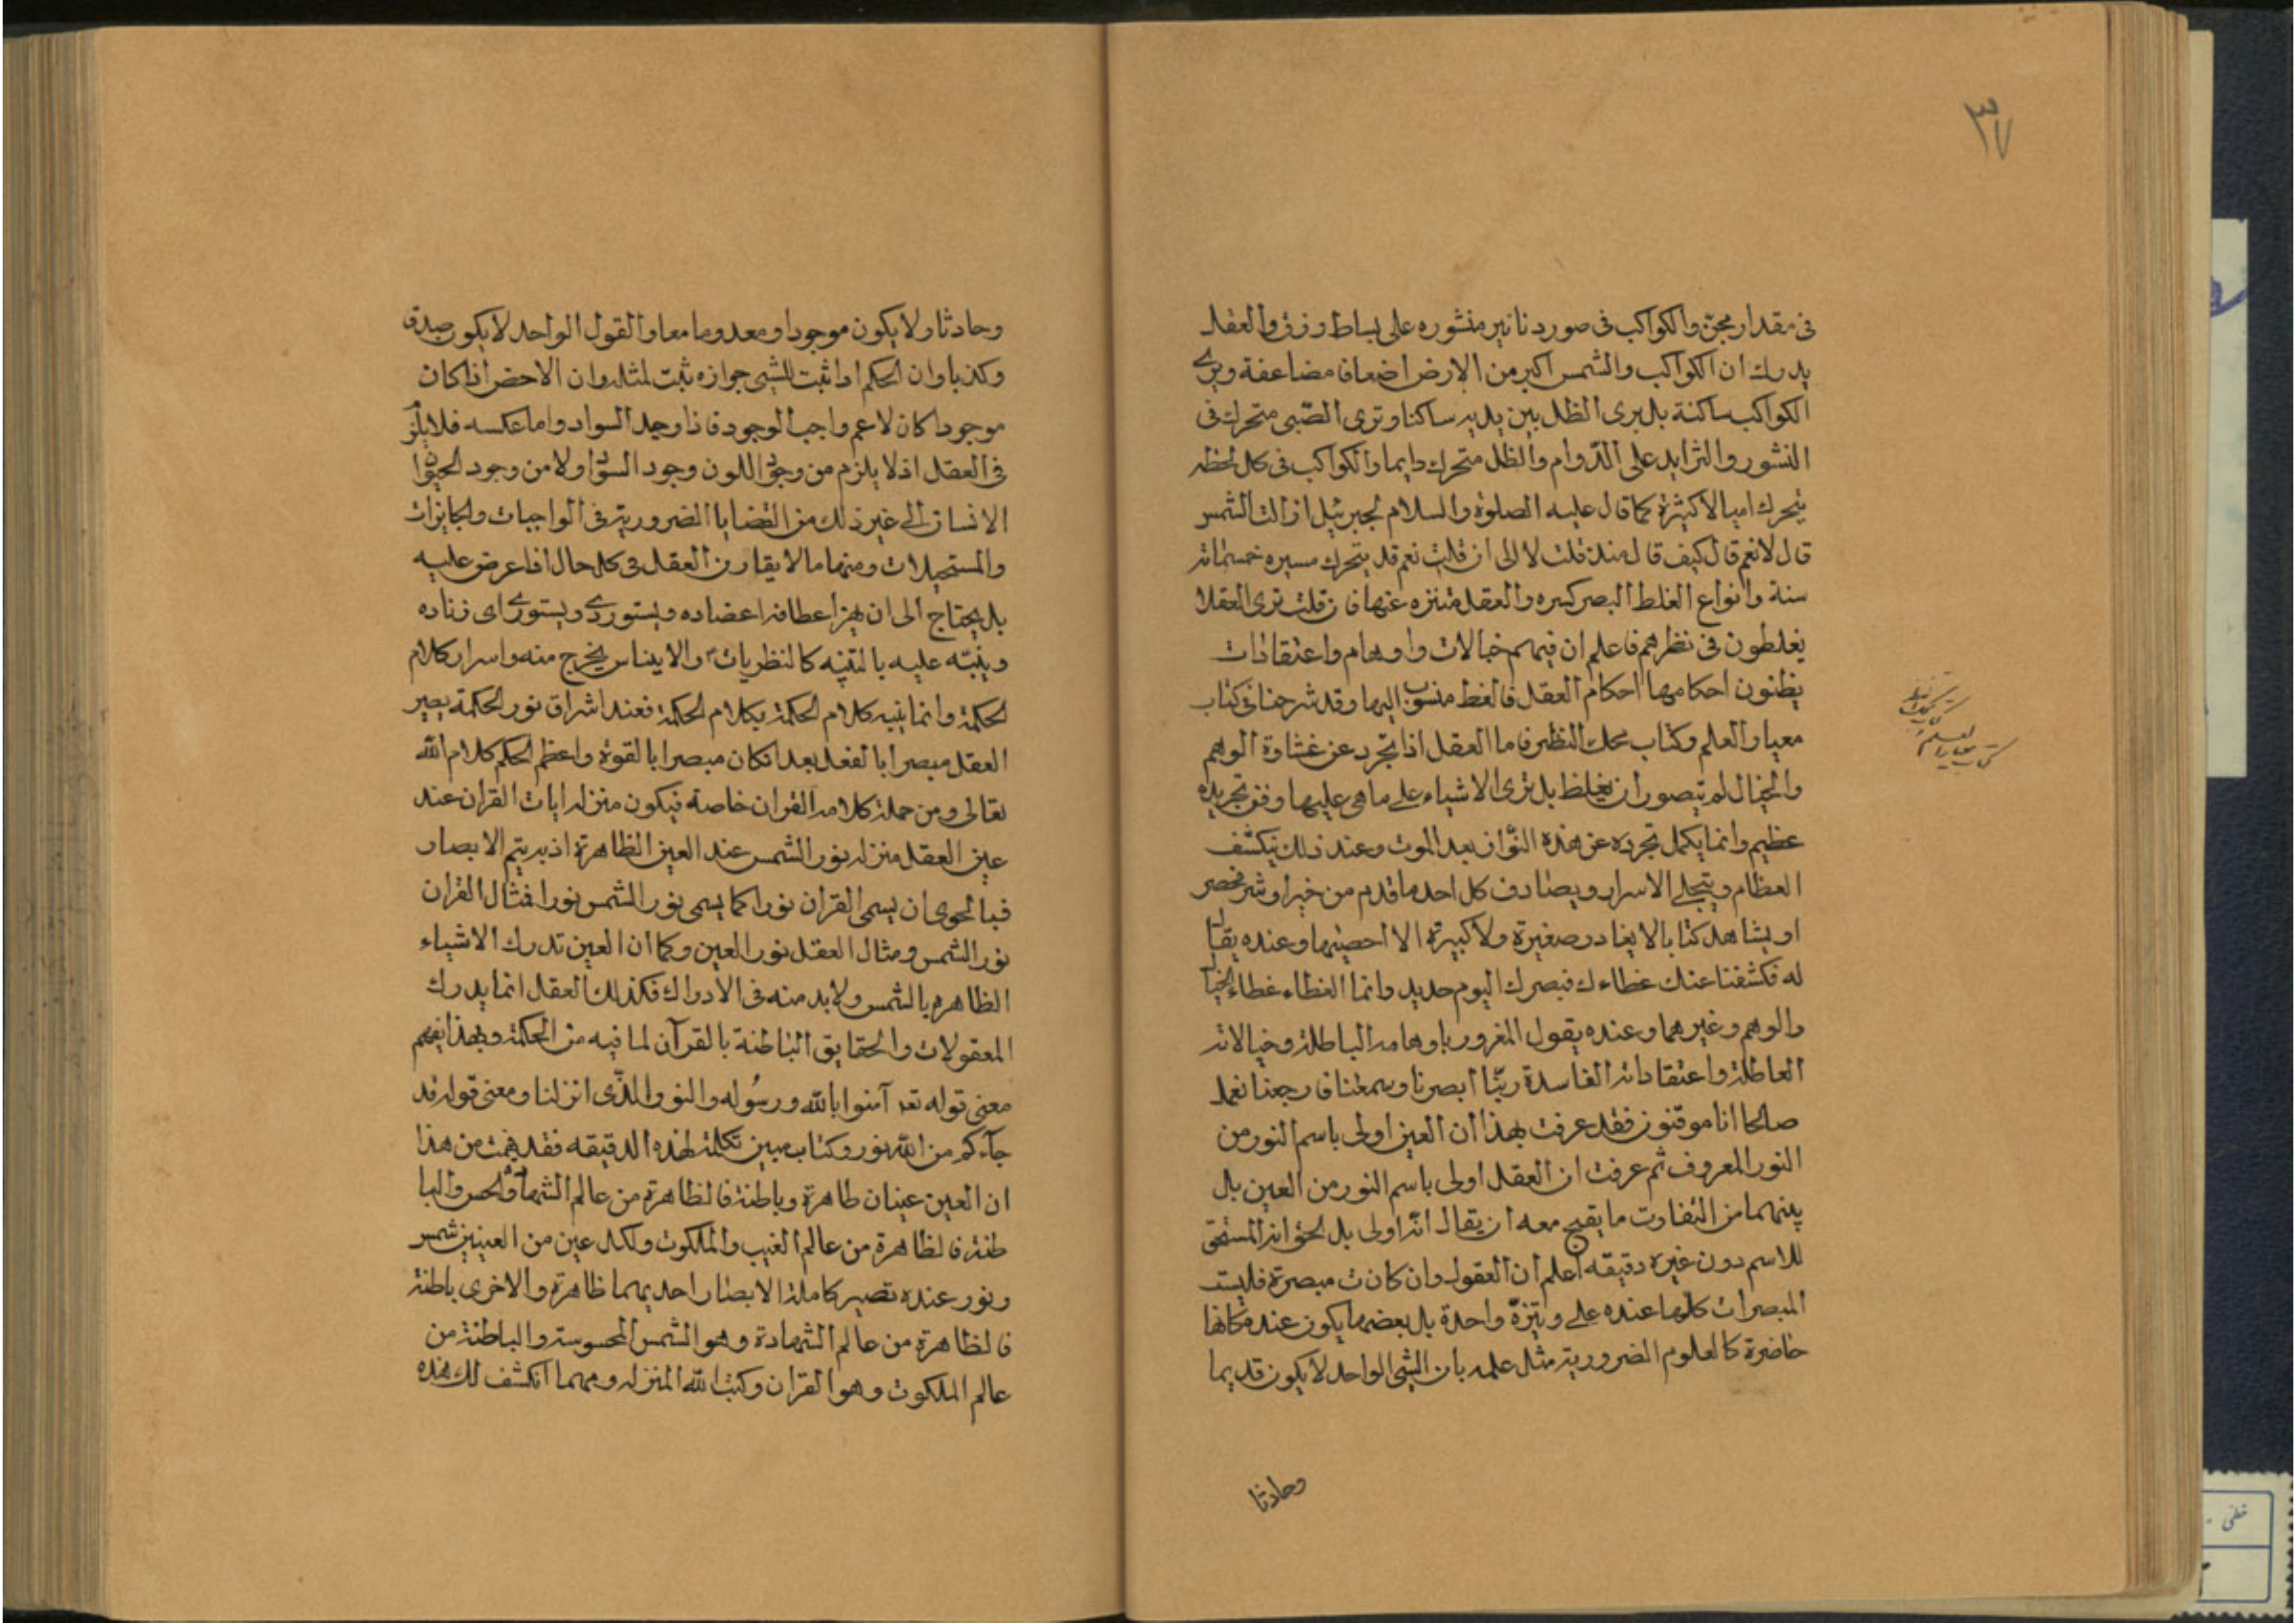 ٣٧
فى مقدار مجن والكواكب فى صور دنانير منثوره على بساط ازرق والعقل
يدرك ان الكواكب والشمس اكبر من الارض اضعافا مضاعفة ويرى
الكواكب ساكنة بل يرى الظل بين يديه ساكنا وترى الصّبى متحرك فى
النشور والتزايد على الدّوام والظل متحرك دايما والكواكب فى كل لحظه
يتحرك اميالا كثيرة كما قال عليه الصلوة والسلام لجبرئيل ازالت الشمس
قال لا نعم قال كيف قال منذ قلت لا الى ان قلت نعم قد يتحرك مسيره خمسمائة
سنة وانواع الغلط البصر كثيره والعقل منزه عنها فان قلت نرى العقلا
يغلطون فى نظرهم فاعلم ان فيهم خيالات واوهام واعتقادات
يظنون احكامها احكام العقل فالغلط منسوب اليها وقد شرحنا فى كتاب
معيار العلم وكتاب محك النظر فاما العقل اذا تجرد عن غشاوة الوهم
والخيال لم يتصور ان يغلط بل ترى الاشياء على ماهى عليها وفى تجريده
عظيم وانما يكمل تجرده عن هذه النوازع بعد الموت وعند ذلك ينكشف
العظام ويتجلى الاسرار ويصادف كل احد ما قدم من خير او شر محضر
او يشاهد كتابا لا يغادر صغيرة ولا كبيرة الا احصيها وعنده يقال
له فكشفنا عنك غطاءك فبصرك اليوم حديد وانما الغطاء غطاء الخيال
والوهم وغيرهما وعنده يقول المغرور باوهامه الباطلة وخيالاته
العاطلة واعتقاداته الفاسدة ربّنا ابصرنا وسمعنا فارجعنا نعمل
صالحا انا موقنون فقد عرفت بهذا ان العين اولى باسم النور من
النور المعروف ثم عرفت ان العقل اولى باسم النور من العين بل
بينهما من التفاوت ما يقبح معه ان يقال انّه اولى بل لحق انه المستحق
للاسم دون غيره دقيقه اعلم ان العقول وان كانت مبصرة فليست
المبصرات كلها عنده على وتيرة واحدة بل بعضها يكون عنده كانها
حاضرة كالعلوم الضرورية مثل علمه بان الشئ الواحد لا يكون قديما
وحادثا
كتاب معيار العلم
وحادثا ولا يكون موجودا ومعدوما معا والقول الواحد لا يكون صدقا
وكذبا وان الحكم اذا ثبت للشئ جوازه ثبت لمثله وان الاخص اذا كان
موجودا كان لاعم واجب الوجود فاذا وجد السواد واما عكسه فلا يلزم
فى العقل اذ لا يلزم من وجود اللون وجود السواد ولا من وجود الحيوان
الانسان الى غير ذلك من القضايا الضرورية فى الواجبات والجايزات
والمستحيلات ومنها ما لا يقارن العقل فى كل حال اذا عرض عليه
بل يحتاج الى ان يهز اعطافه اعضاده ويستورى ويستورى اى زناده
وينبّه عليه بالتنبيه كالنظريات والايناس يخرج منه واسرار كلام
الحكمة وانما ينبيه كلام الحكمة بكلام الحكمة فعند اشراق نور الحكمة يصير
العقل مبصرا بالفعل بعد انكان مبصرا بالقوة واعظم الحكم كلام الله
تعالى ومن جملة كلامه القران خاصة فيكون منزله ايات القران عند
عين العقل منزله نور الشمس عند العين الظاهرة اذ به يتم الابصار
فبالحرى ان يسمى القران نورا كما يسمى نور الشمس نورا فمثال القران
نور الشمس ومثال العقل نور العين وكما ان العين تدرك الاشياء
الظاهره بالشمس ولا بد منه فى الادراك فكذلك العقل انما يدرك
المعقولات والحقايق الباطنة بالقرآن لما فيه من الحكمة وبهذا يفهم
معنى قوله تعه آمنوا بالله ورسُوله والنور الّذى انزلنا ومعنى قوله قد
جآءكم من الله نور وكتاب مبين تكلمة لهذه الدقيقه فقد فهمت من هذا
ان العين عينان ظاهرة وباطنة فالظاهرة من عالم الشهادة والحس والبا
طنة فالظاهرة من عالم الغيب والملكوت ولكل عين من العينين شمس
ونور عنده تصير كاملة الابصار احديهما ظاهرة والاخرى باطنة
فالظاهرة من عالم الشهادة وهو الشمس المحسوسة والباطنة من
عالم الملكوت وهو القران وكتب الله المنزله ومهما انكشف لك هذه